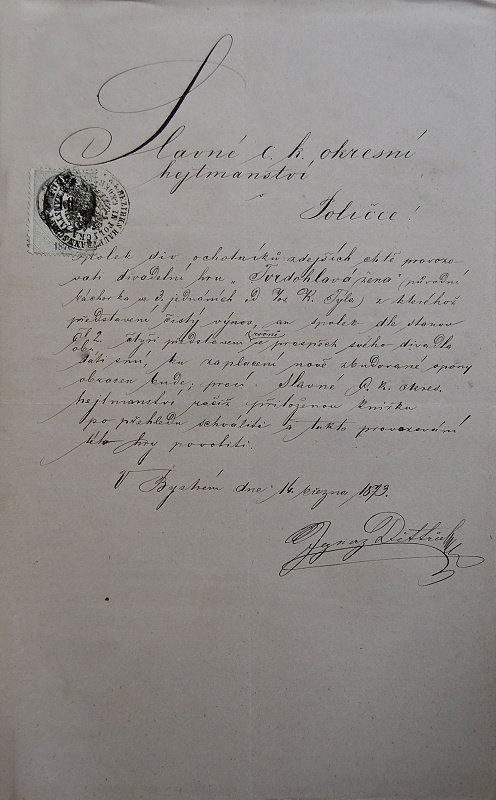 Slavné c. k. okresní
hejtmanství
Poličce!
Spolek div. ochotníků zdejších chtě provozo-
vati divadelní hru „Tvrdohlavá žena" původní
báchorka ve 3. jednáních od Jos. K. Tyla, z kteréhož
představení čistý výnos, an spolek dle stanov
čl. 2. čtyři představení ročně ve prospěch svého divadla
dáti smí, ku zaplacení nově zbudované opony
obrácen bude, prosí Slavné c. k. okres.
hejtmanství račiž přiloženou knížku
po přehledu schváliti a takto provozování
této hry povoliti.
V Bystrém dne 14. března 1879.
Ignaz Dittrich